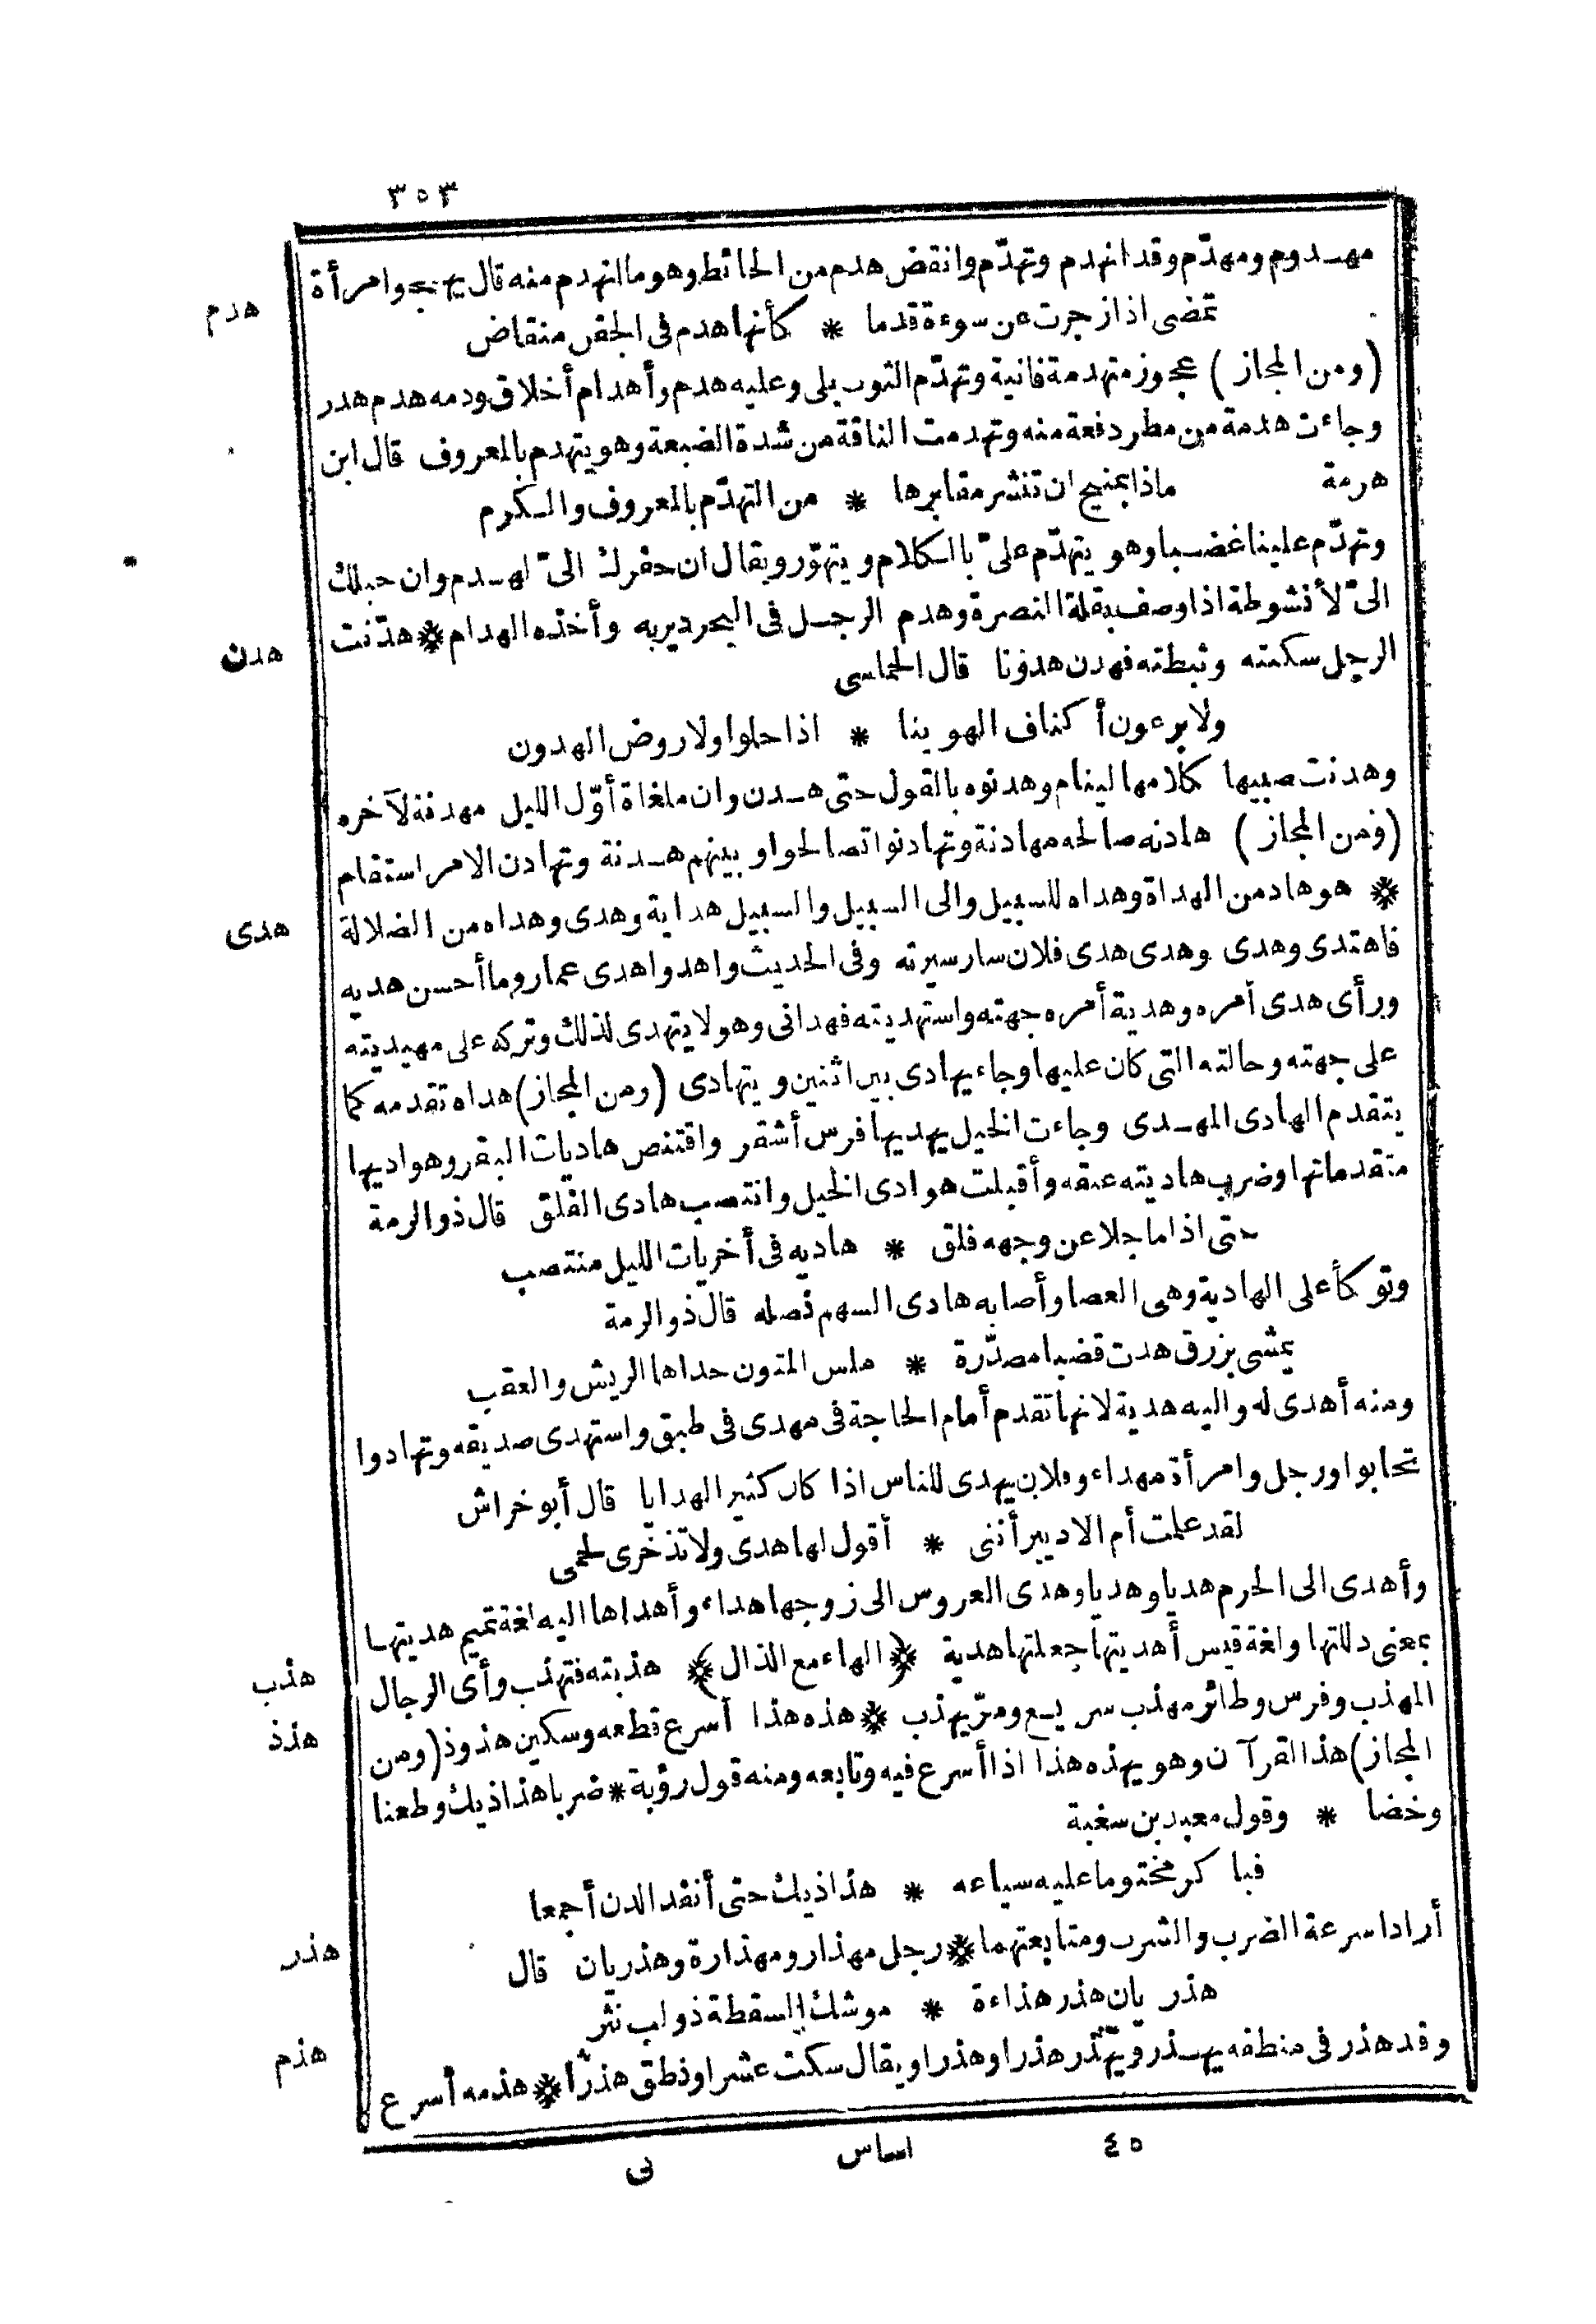 ٣٥٣
مهدوم ومهدّم وقد انهدم وتهدّم وانقض هدم من الحائط وهو ما انهدم منه قال يهجو امرأة
هدم
تمضى اذا زجرت عن سوءة قدما * كأنها هدم فى الجفر منقاض
(ومن المجاز) عجوز متهدمة فانية وتهدّم الثوب بلى وعليه هدم وأهدام أخلاق ودمه هدم هدر
وجاءت هدمة من مطر دفعة منه وتهدمت الناقة من شدة الضبعة وهو يتهدم بالمعروف قال ابن
هرمة ماذا بمنبج ان تنشر مقابرها * من التهدّم بالمعروف والكرم
وتهدّم علينا غضبا وهو يتهدّم علىّ بالكلام ويتهوّر ويقال ان حفرك الىّ لهدم وان حبلك
الىّ لأنشوطة اذا وصف بقلة النصرة وهدم الرجل فى البحر ديربه وأخذه الهدام ۞ هدّنت
هدن
الرجل سكنته وثبطته فهدن هدونا قال الحماسى
ولا يرعون أكناف الهوينا * اذا حلوا ولا روض الهدون
وهدنت صبيها كلامها لينام وهدنوه بالقول حتى هدن وان ملغاة أوّل الليل مهدنة لآخره
(ومن المجاز) هادنه صالحه مهادنة وتهادنوا تصالحوا وبينهم هدنة وتهادن الامر استقام
۞ هو هاد من الهداة وهداه للسبيل والى السبيل والسبيل هداية وهدى وهداه من الضلالة
هدى
فاهتدى وهدى وهدى هدى فلان سار سيرته وفى الحديث واهدوا هدى عمار وما أحسن هديه
ورأى هدى أمره وهدية أمره جهته واستهديته فهدانى وهو لا يتهدى لذلك وتركه على مهيديته
على جهته وحالته التى كان عليها وجاء يهادى بين اثنين ويتهادى (ومن المجاز) هداه تقدمه كما
يتقدم الهادى المهدى وجاءت الخيل يهديها فرس أشقر واقتنص هاديات البقر وهواديها
متقدماتها وضرب هاديته عنقه وأقبلت هوادى الخيل وانتصب هادى الفلق قال ذو الرمة
حتى اذا ما جلا عن وجهه فلق * هاديه فى أخريات الليل منتصب
وتوكأ على الهادية وهى العصا وأصابه هادى السهم نصله قال ذو الرمة
يمشى بزرق هدت قضبا مصدّرة * ملس المتون حداها الريش والعقب
ومنه أهدى له واليه هدية لانها تقدم أمام الحاجة فى مهدى فى طبق واستهدى صديقه وتهادوا
تحابوا ورجل وامرأة مهداء وفلان يهدى للناس اذا كان كثير الهدايا قال أبو خراش
لقد علمت أم الاديبر أننى * أقول لها هدى ولا تذخرى لحمى
وأهدى الى الحرم هديا وهديا وهدى العروس الى زوجها هداء وأهداها اليه لغة تميم هديتها
بمعنى دللتها ولغة قيس أهديتها جعلتها هدية ﴿۞ الهاء مع الذال ۞﴾ هذبته فتهذب وأى الرجال
هذب
المهذب وفرس وطائر مهذب سريع ومرّ يهذب ۞ هذه هذا أسرع قطعه وسكين هذوذ (ومن
هذذ
المجاز) هذ القرآن وهو يهذه هذا اذا أسرع فيه وتابعه ومنه قول رؤبة * ضربا هذاذيك وطعنا
وخضا * وقول معبد بن سغبة
فباكر مختوما عليه سياعه * هذاذيك حتى أنفد الدن أجمعا
أرادا سرعة الضرب والشرب ومتابعتهما ۞ رجل مهذار ومهذارة وهذريان قال
هذر
هذريان هذر هذاءة * موشك السقطة ذو لب نثر
وقد هذر فى منطقه يهذر ويهذر هذرا وهذرا ويقال سكت عشرا ونطق هذرا ۞ هذمه أسرع
هذم
٤٥ اساس نى